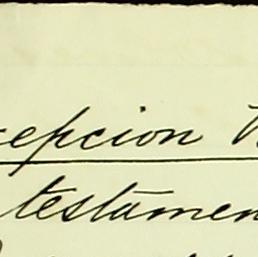 cepcion
testamen